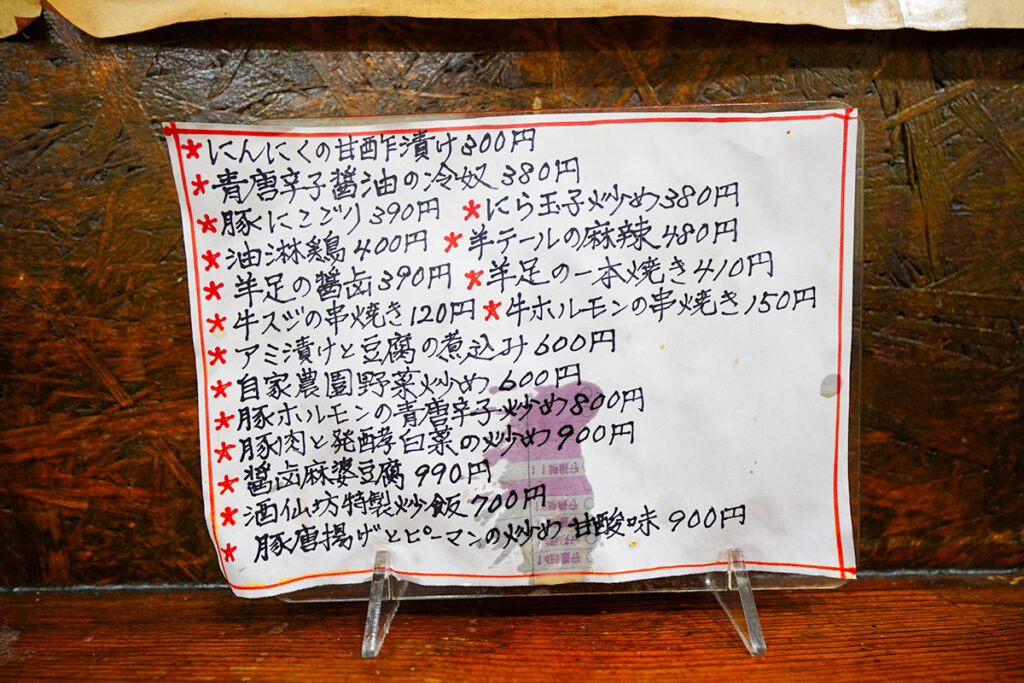 *にんにくの甘酢漬け300円
*青唐辛子醤油の冷奴 380円
*豚にこごり390円 *にら玉子炒め380円
*油淋鶏400円 *羊テールの麻辣480円
*羊足の醤卤390円 *羊足の一本焼き410円
*牛スジの串焼き120円 *牛ホルモンの串焼き150円
*アミ漬けと豆腐の煮込み600円
*自家農園野菜炒め 600円
*豚ホルモンの青唐辛子炒め800円
*豚肉と発酵白菜の炒め900円
*醤卤麻婆豆腐 990円
*酒仙坊特製炒飯 700円
*豚唐揚げとピーマンの炒め 甘酸味 900円